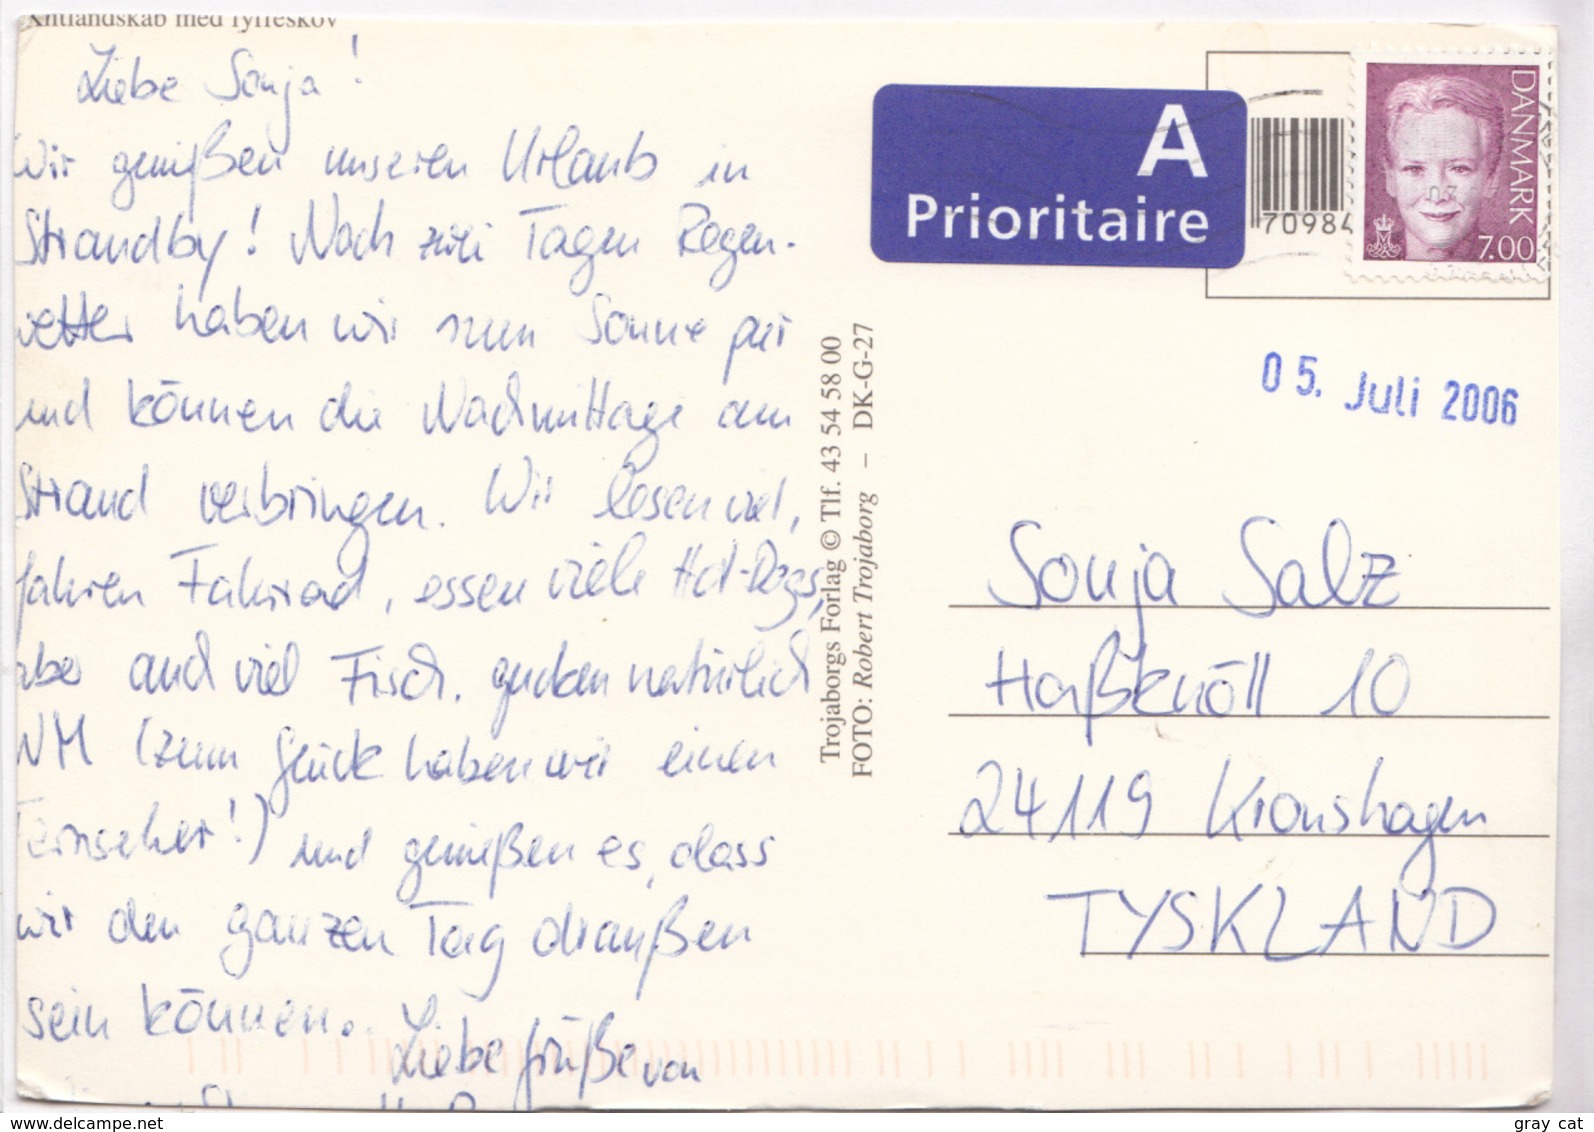 Klitlandskab med fyrreskov
Liebe Sonja!
Wir genießen unseren Urlaub in
Strandby! Nach zwei Tagen Regen-
wetter haben wir nun Sonne pur
und können die Nachmittage am
Strand verbringen. Wir lesen viel,
fahren Fahrrad, essen viele Hot-Dogs,
aber auch viel Fisch, gucken natürlich
WM (zum Glück haben wir einen
Fernseher!) und genießen es, dass
wir den ganzen Tag draußen
sein können.
Liebe Grüße von
Trojaborgs Forlag © Tlf. 43 54 58 00
FOTO: Robert Trojaborg – DK-G-27
A
Prioritaire
70984
DANMARK
7.00
05. Juli 2006
Sonja Salz
Haßknöll 10
24119 Kronshagen
TYSKLAND
www.delcampe.net
gray cat